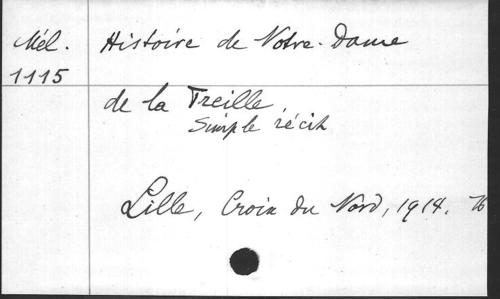 Mél.
1115
Histoire de Notre-Dame
de la Treille,
Simple récit
Lille, Croix du Nord, 1914.